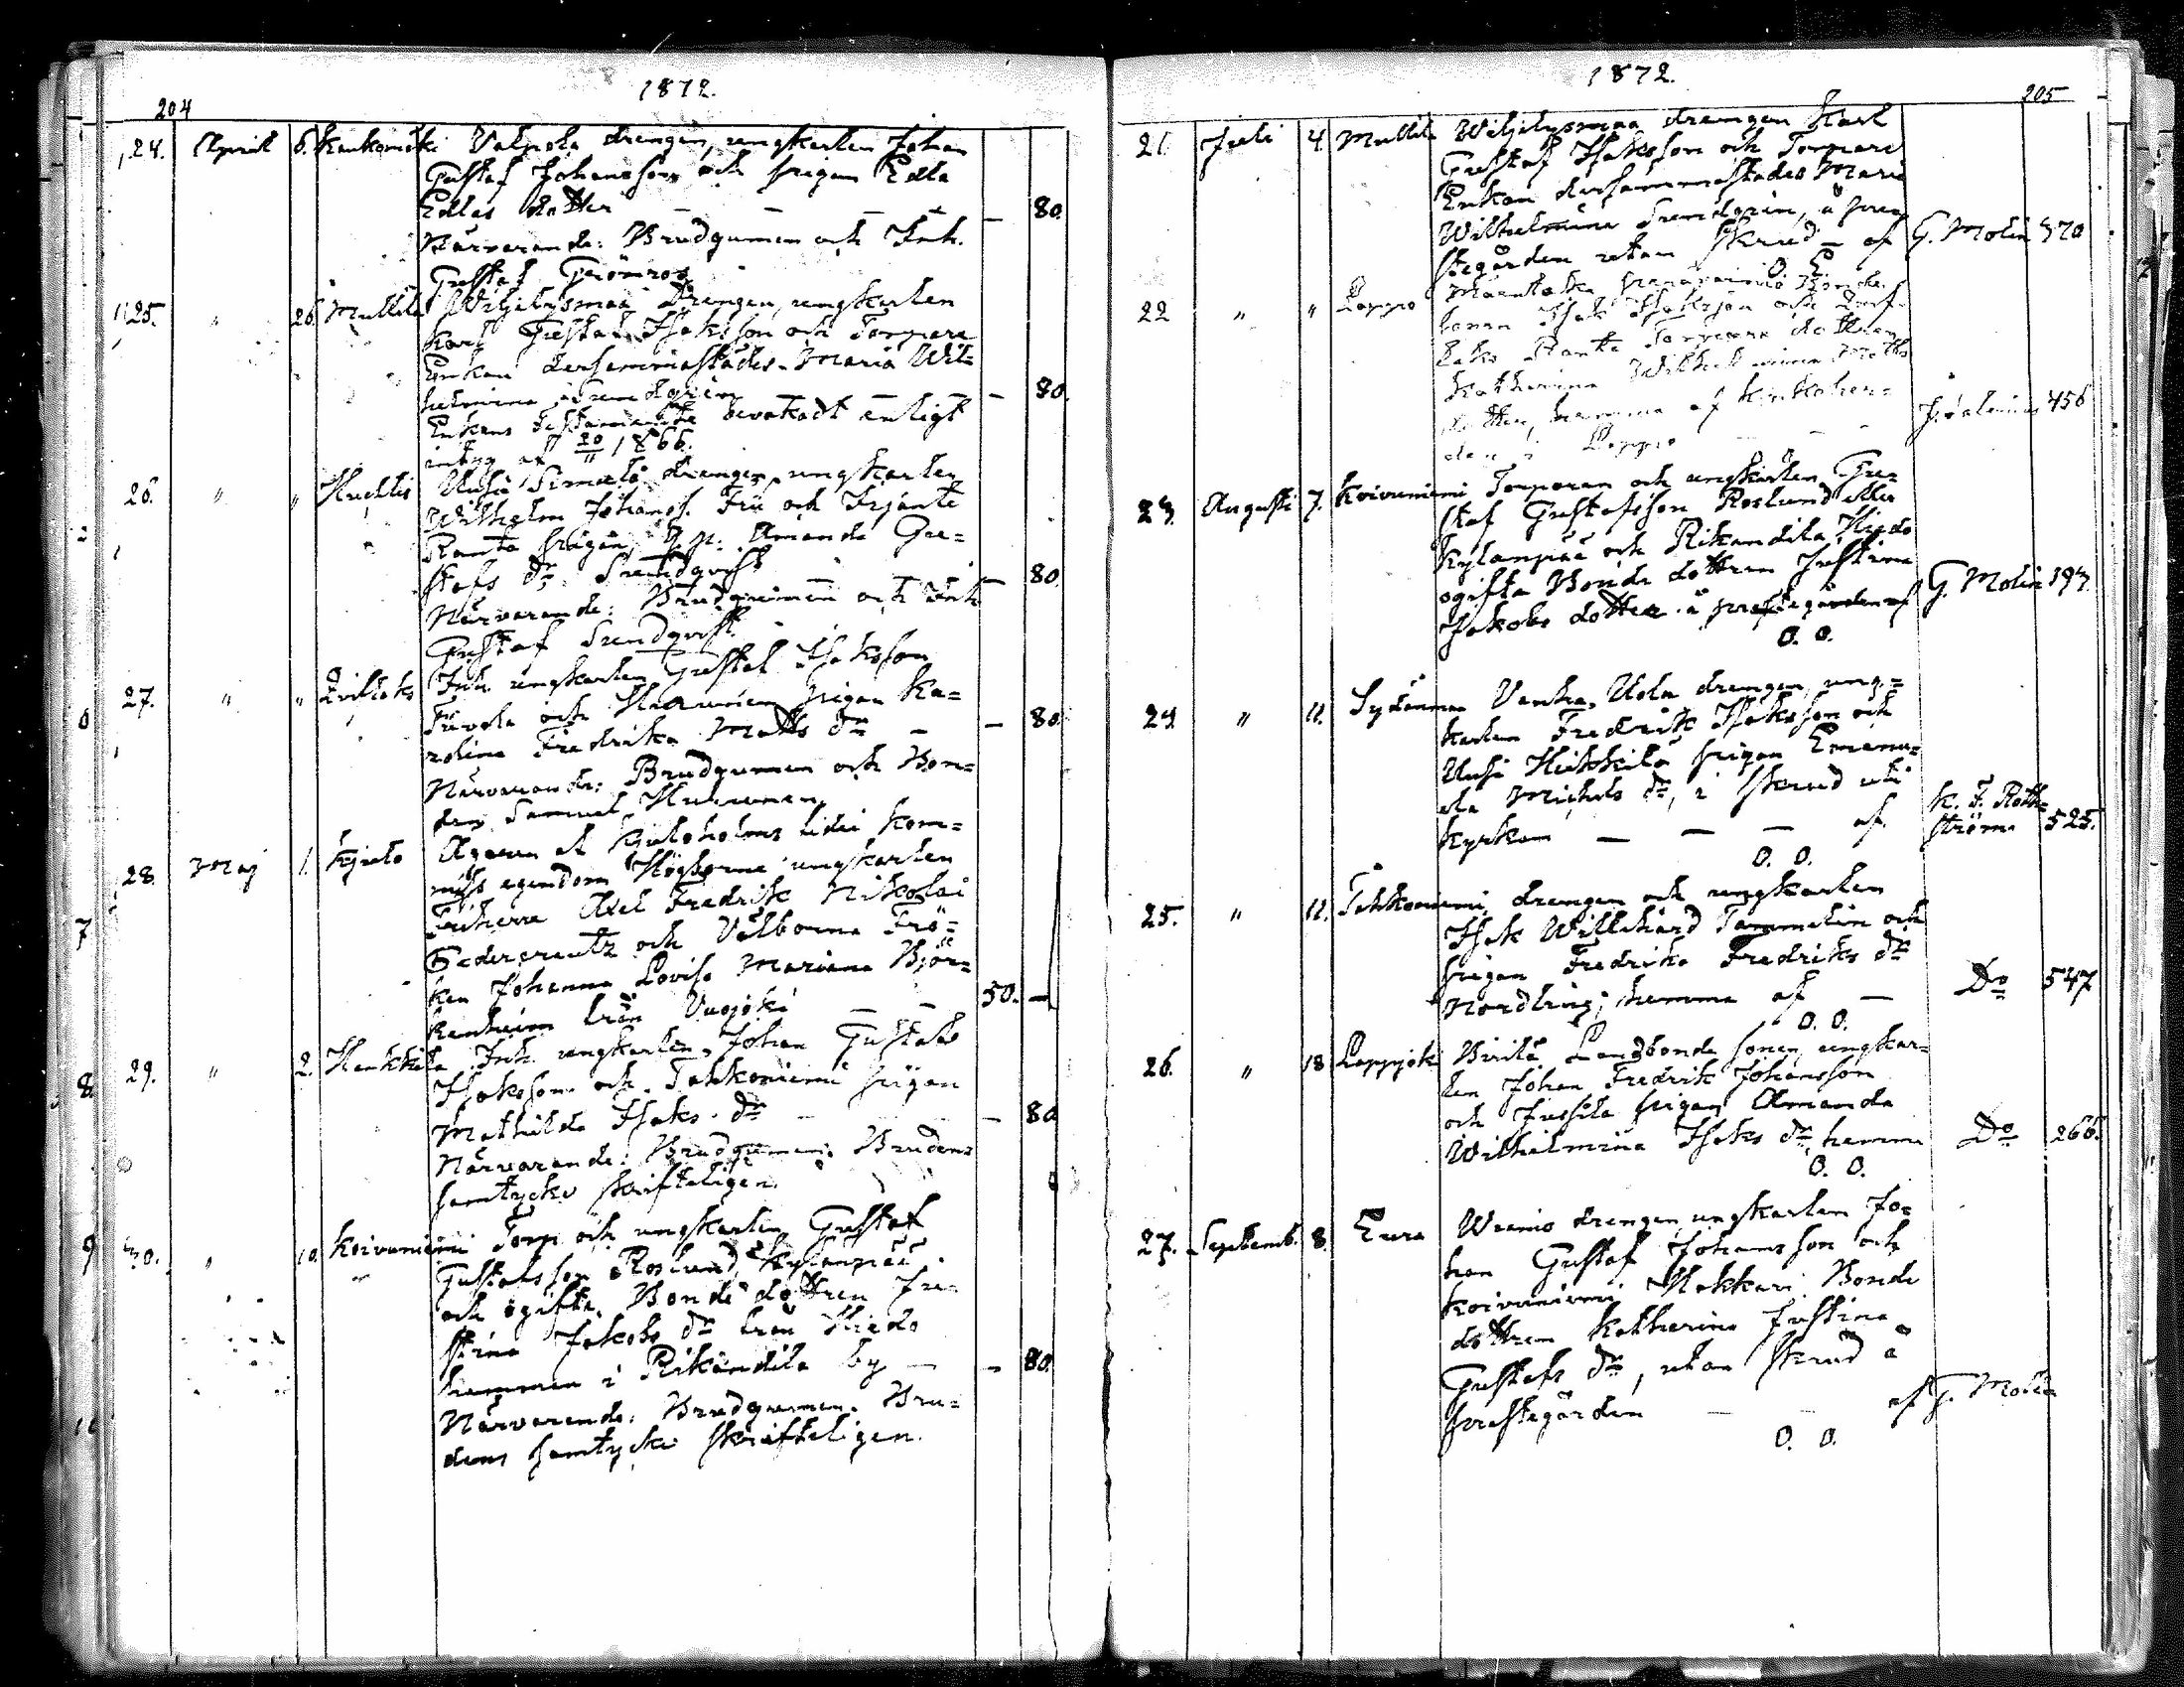 1872.
204
24. April 6. Kaukomäki Valpola drengen, ungkarlen Johan
Gustaf Johansson och pigan Edla
Edlas dotter — — — — 80.
Närvarande: Brudgumen och Inh.
Gustaf Grönroos
25. " 26 Mullila Wiljelysmaa Drengen, ungkarlen
Karl Gustaf Isaksson och Torpare
Enkan dersammastädes Maria Wil-
helmina Sundgren — 80.
Enkans Testamente bevakadt enligt
intyg af 20/11 1866.
26. " " Huhtis Uusi Simola drengen, ungkarlen
Wilhelm Johans. Fri och Irjante
Ranta pigan, Amanda Gu-
stafs dr Sundqvist — 80.
Närvarande: Brudgumen och Inh
Gustaf Sundqvist.
27. " " Inh. ungkarlen Gustaf Isaksson
och pigan Ka-
rolina Fredrika Matts dr — — 80.
Närvarande: Brudgumen och Bon-
den Samuel
28. Maj 1. Kjulo Ägaren af Kjuloholms
egendom Högborne ungkarlen
Friherre Axel Fredrik Nikolai
Cedercreutz och Välborna Frö-
ken Johanna Lovisa Mariana Björ-
kenheim från Vuojoki — — 50. —
29. " 2. Heikkilä Inh. ungkarlen, Johan Gustaf
Isaksson och Tahkoniemi pigan
Mathilda Isaks dr — — 80
Närvarande: Brudgumen. Brudens
samtycke skrifteligen.
30. " 10. Koivuniemi Torp. och ungkarlen Gustaf
Gustafsson Roslund, Kylänpää
och ogifta Bonde dottren Ju-
stina Jakobs dr från Hiedo
hemman i Rikandila by — — 80.
Närvarande: Brudgumen. Bru-
dens samtycke skrifteligen.
1872.
205
21. Juli 4. Mullila Wiljelysmaa drengen Karl
Gustaf Isaksson och Torpare
Enkan dersammastädes Maria
Wilhelmina Sundgren, å pre-
stegården utan skrud — af G. Molin 370
O. O.
22 " " Lappo Bonde-
sonen Isak Isaksson och
Ranta Torpare dottren
Katharina Wilhelmina Matts
dotter, hemma af
i Lappo — — 456
23. Augusti 7. Koivuniemi Torparen och ungkarlen Gu-
staf Gustafsson Roslund eller
Kylänpää och Rikandila, Hiedo
ogifta Bonde dottren Justina
Jakobs dotter å prestegården af G. Molin 197.
O. O.
24. " 11. Sydänmaa Vanha Uola drengen ung-
karlen Fredrik Isaksson och
Uusi Heikkilä pigan Emanu-
ela Michels dr, i skrud uti
kyrkan — — — af K. F. Roth-
ström 525.
O. O.
25. " 12. Tahkoniemi drengen och ungkarlen
Isak Willehard Tammelin och
pigan Fredrika Fredriks dr
Nordling; hemma af — Do 547
O. O.
26. " 18 Lappijoki Birilä Landbonde sonen, ungkar-
len Johan Fredrik Johansson
och Jussila pigan Amanda
Wilhelmina Isaks dr, hemma Do 266.
O. O.
27. Septemb. 8. Eura Wainio drengen ungkarlen Jo-
han Gustaf Johansson och
Koivuniemi Bonde
dottren Katharina Justina
Gustafs dr, utan skrud å
prestegården — — af G. Molin
O. O.